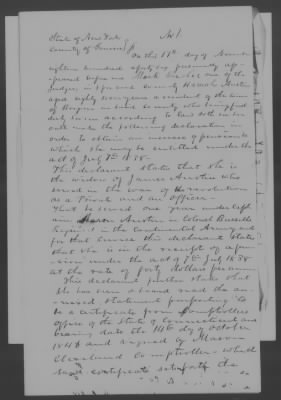 State of New York No 1
County of Genesee
On this 18th day of
eighteen hundred personally ap-
peared before me one of the
judges in & for said county Hannah Austin
aged eighty years a resident of the town
of Bergen in said county who being first
duly sworn according to law doth on her
oath make the following declaration in
order to obtain an increase of pension to
which she may be entitled under the
act of July 7th 1838
This declarant states that she is
the widow of James Austin who
served in the war of the revolution
as a Private and an Officer
That he served one year under Capt
Aaron Austin in Colonel Burrells
Regiment in the Continental Army and
for that service this declarant states
that she is in the receipt of a pen-
sion under the act of 7th July 1838
at the rate of forty dollars per annum
This declarant further states that
she has seen and read the an-
nexed statement purporting to
be a certificate from Comptrollers
Office of the State of Connecticut and
bearing date the 14th day of October
184 and signed by Mason
Cleveland Comptroller which
said certificate the